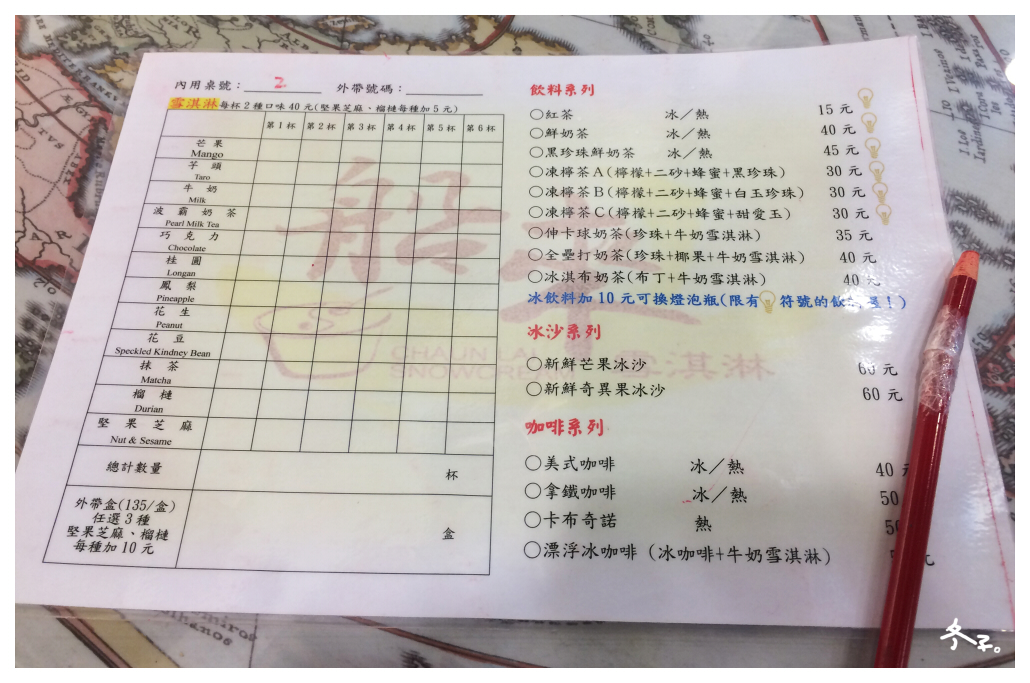 內用桌號：2 外帶號碼：
雪淇淋每杯2種口味40元(堅果芝麻、榴槤每種加5元)
第1杯 第2杯 第3杯 第4杯 第5杯 第6杯
芒果
Mango
芋頭
Taro
牛奶
Milk
波霸奶茶
Pearl Milk Tea
巧克力
Chocolate
桂圓
Longan
鳳梨
Pineapple
花生
Peanut
花豆
Speckled Kindney Bean
抹茶
Matcha
榴槤
Durian
堅果芝麻
Nut & Sesame
總計數量 杯
外帶盒(135/盒)
任選3種
堅果芝麻、榴槤
每種加10元
盒
飲料系列
○紅茶 冰／熱 15元
○鮮奶茶 冰／熱 40元
○黑珍珠鮮奶茶 冰／熱 45元
○凍檸茶A(檸檬+二砂+蜂蜜+黑珍珠) 30元
○凍檸茶B(檸檬+二砂+蜂蜜+白玉珍珠) 30元
○凍檸茶C(檸檬+二砂+蜂蜜+甜愛玉) 30元
○伸卡球奶茶(珍珠+牛奶雪淇淋) 35元
○全壘打奶茶(珍珠+椰果+牛奶雪淇淋) 40元
○冰淇布奶茶(布丁+牛奶雪淇淋) 40元
冰飲料加10元可換燈泡瓶(限有 符號的飲 ！)
冰沙系列
○新鮮芒果冰沙 60元
○新鮮奇異果冰沙 60元
咖啡系列
○美式咖啡 冰／熱 40
○拿鐵咖啡 冰／熱 50
○卡布奇諾 熱
○漂浮冰咖啡 (冰咖啡+牛奶雪淇淋) 元
雪淇淋
冬子。